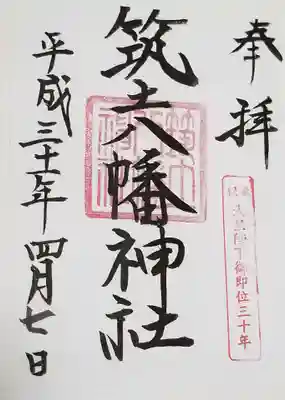 奉拝
奉祝 天皇陛下御即位三十年
筑土八幡神社
平成三十年四月七日